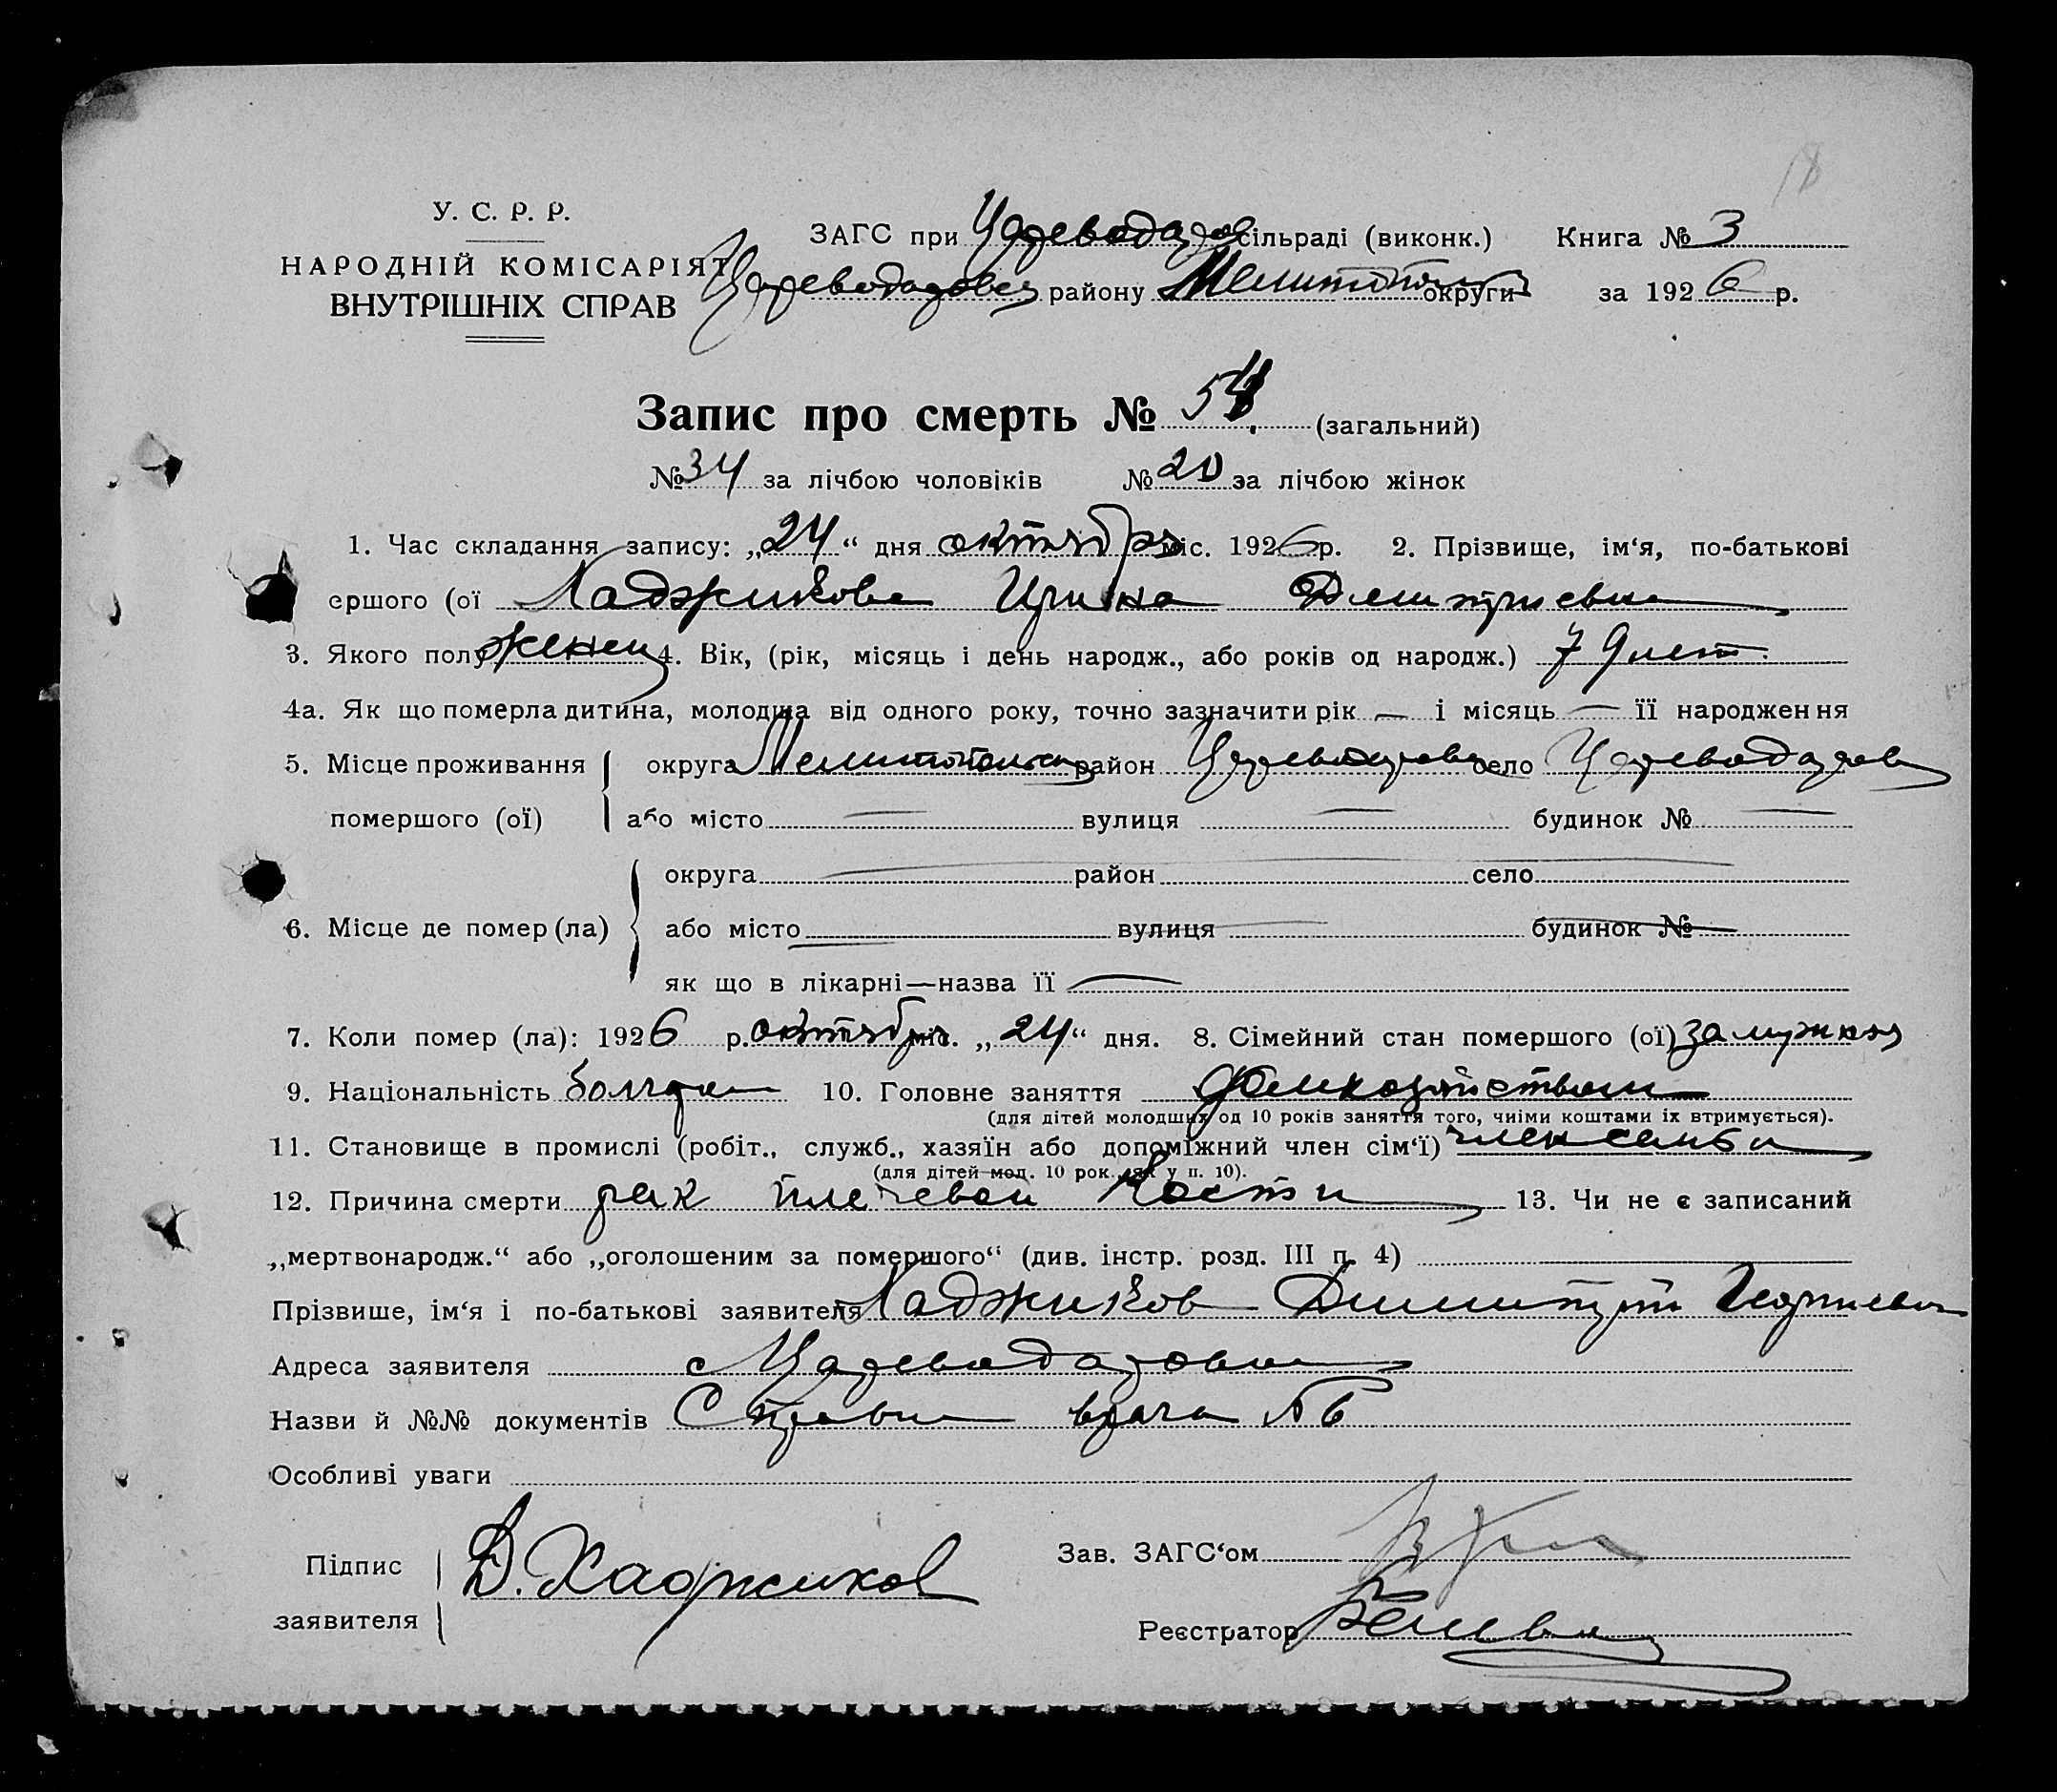 У. С. Р. Р.
НАРОДНІЙ КОМІСАРІЯТ
ВНУТРІШНІХ СПРАВ
ЗАГС при сільраді (виконк.) Книга № 3
району округи за 1926 р.
Запис про смерть № 54 (загальний)
№ 34 за лічбою чоловіків № 20 за лічбою жінок
1. Час складання запису: „24“ дня октября міс. 1926 р. 2. Прізвище, ім‘я, по-батькові
ершого (ої Хаджикова Ирина Дмитриевна
3. Якого полу женск 4. Вік, (рік, місяць і день народж., або років од народж.) 79 лет.
4а. Як що померла дитина, молодша від одного року, точно зазначити рік — і місяць — її народження
5. Місце проживання округа район село
помершого (ої) або місто — вулиця — будинок № —
округа район село
6. Місце де помер (ла) або місто вулиця будинок №
як що в лікарні—назва її —
7. Коли помер (ла): 1926 р. октября міс. „24“ дня. 8. Сімейний стан помершого (ої) замужняя
9. Національність болгарка 10. Головне заняття домхозяйством
(для дітей молодших од 10 років заняття того, чиїми коштами їх втримується).
11. Становище в промислі (робіт., служб., хазяїн або допоміжний член сім‘ї) член семьи
(для дітей мол. 10 рок., як у п. 10).
12. Причина смерти рак плечевой кости 13. Чи не є записаний
„мертвонародж.“ або „оголошеним за помершого“ (див. інстр. розд. III п. 4)
Прізвише, ім‘я і по-батькові заявителя Хаджиков Димитрий Георгиевич
Адреса заявителя с
Назви й №№ документів Справка врача
Особливі уваги
Підпис
заявителя
Д. Хаджиков
Зав. ЗАГС‘ом
Реєстратор